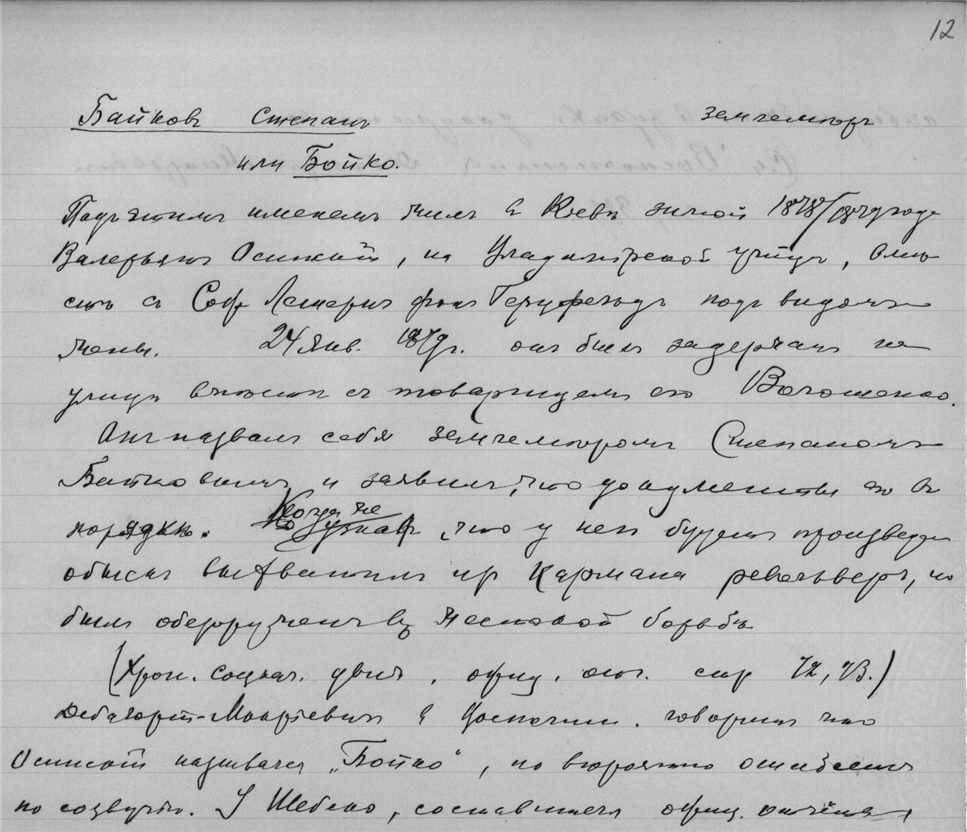 12
Байковъ Степанъ землемѣръ
или Бойко.
Подъ этимъ именемъ жилъ въ Кіевѣ зимой 1878/1879 года
Валерьянъ Осинскій, на улицѣ, вмѣ
стѣ съ Соф. Лешернъ фонъ Герцфельдъ подъ видомъ
жены. 24 Янв. 1879 г. онъ былъ задержанъ на
улицѣ вмѣстѣ съ товарищемъ его Волошенко.
Онъ назвалъ себя землемѣромъ Степаномъ
Байковымъ и заявилъ, что документы его въ
порядкѣ. Когда же узналъ, что у него будетъ произведенъ
обыскъ выхватилъ изъ кармана револьверъ, но
былъ обезоруженъ въ борьбѣ
(Хрон. соціал. движ. офиц. отч. стр 72, 73.)
Дебагорій-Мокріевичъ въ Воспомин. говоритъ что
Осинскій назывался „Бойко“, но вѣроятно ошибся
по созвучію. У Шебеко, составителя офиц. отчёта